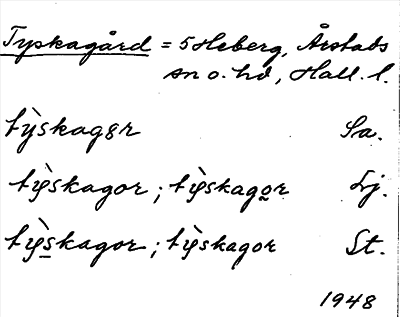 Tyskagård = 5 Heberg, Årstads
sn o. hd, Hall. l.
tỳskagɑr Sa.
tỳskagor ; tỳskagor Lj.
tỳskagor ; tỳskagor St.
1948